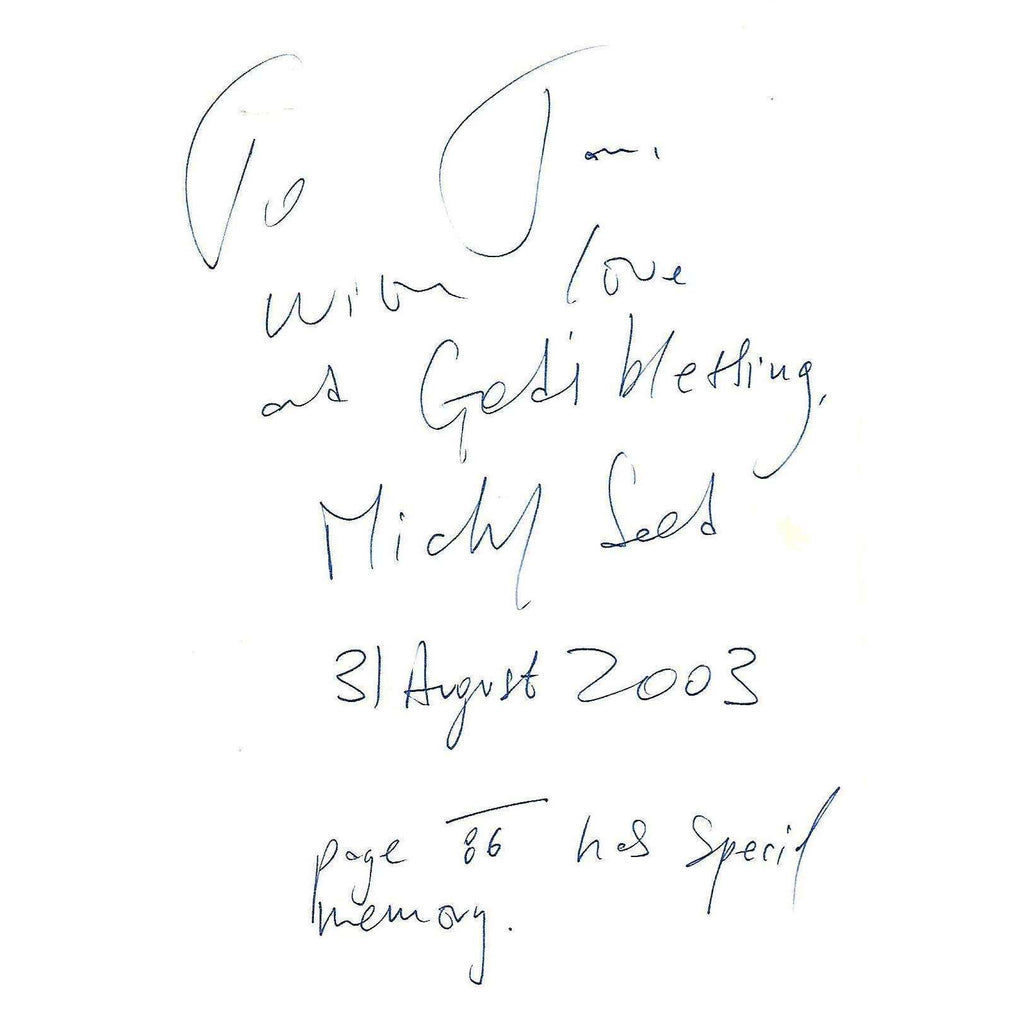 To Tom,
with love
and God's blessing,
Michael Seed
31 August 2003
page 86 has special
memory.